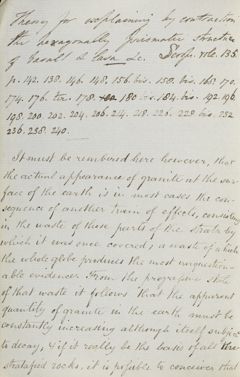 Theory for explaining by contraction
the hexagonally prismatic structure
of basalt & lava &c. Scrope. vol. 135.
p. 142. 138. 146. 148. 156 bis. 158. bis. 162. 170.
174. 176. ter. 178. 180 bis. 184. bis. 192. 196
198. 200. 202. 204. 206. 214. 218. 226. 228 bis. 232
236. 238. 240.
It must be remembered here however, that
the actual appearance of granite at the sur-
face of the earth is in most cases the con-
sequence of another train of effects, consisting
in the waste of those parts of the strata by
which it was once covered; a waste of which
the whole globe produces the most unquestion-
able evidences. From the progressive state
of that waste it follows that the apparent
quantity of granite in the earth must be
constantly increasing although itself subject
to decay, & if it really be the basis of all the
stratified rocks, it is possible to conceive that